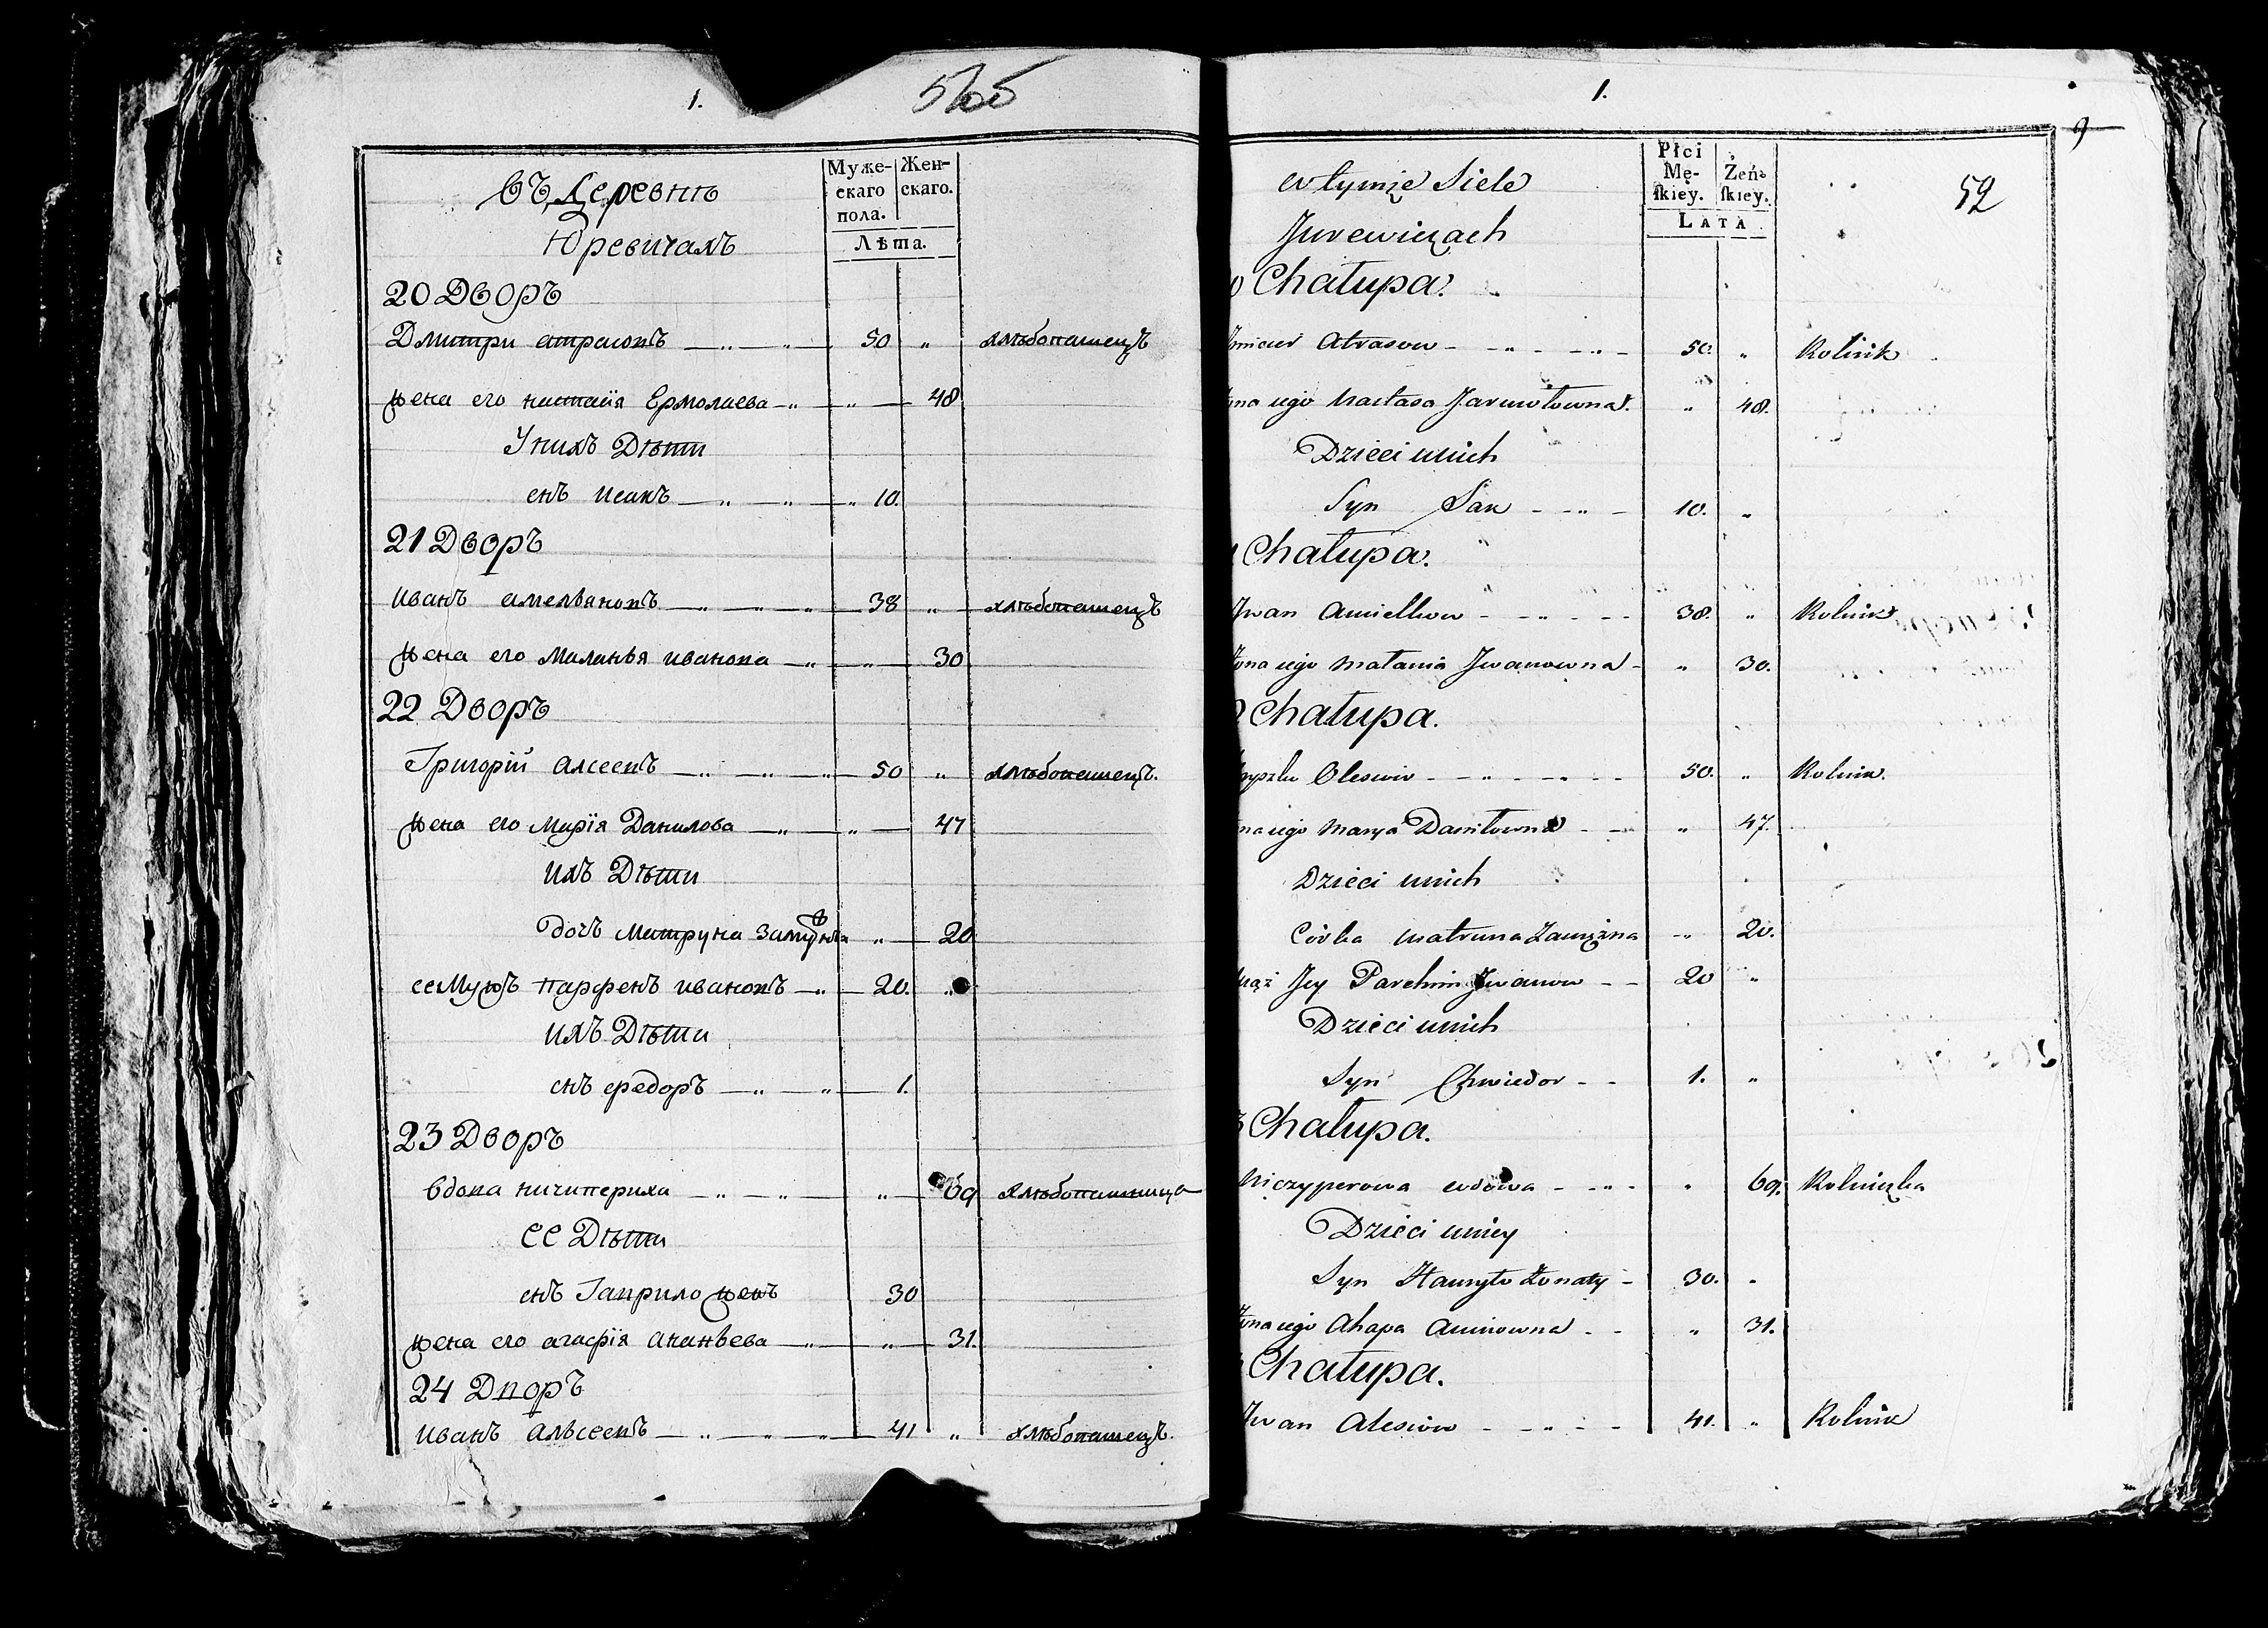 1.
Муже-
скаго
пола.
Жен-
скаго.
Лѣта.
въ Деревнѣ
Юревичахъ
20 Дворъ
Дмитри атрасовъ — „ — „ — 50 „ хлѣбопашецъ
жена его настасія Ермолаева — „ — „ — 48
У нихъ Дѣти
снъ исакъ — „ — „ — „ 10.
21 Дворъ
иванъ амельяновъ — „ — „ — „ — 38 „ — хлѣбопашецъ
жена его маланья иванова — „ — „ — 30
22 Дворъ
Григорій алсеевъ — „ — „ — „ — 50 „ хлѣбопашецъ.
жена его Марія Данилова — „ — „ — 47
ихъ Дѣти
дочъ матруна „ — 20
ее Мужъ парфенъ ивановъ — „ — 20. „
ихъ Дѣти
снъ федоръ — „ — „ — 1.
23 Дворъ
вдова ничипериха — „ — „ — „ — 69 хлѣбопашица
ее Дѣти
снъ Гаврило жен 30
жена его агафія ананьева — „ — „ — 31.
24 Дворъ
иванъ альсеевъ — „ — „ — „ — 41 „ хлѣбопашецъ.
1.
9
52
Płci
Mę-
ſkiey.
Żeń-
ſkiey.
LATA
w tymże Siele
Jurewiczach
Chałupa.
Atrasow - „ - „ - 50. „ Rolnik
iego Nastasa Jarmołowna. „ 48.
Dzieci unich
Syn Sak - „ - 10. „
Chałupa.
Iwan Amielkow - „ - - 38. „ Rolnik
Żona iego Małania Iwanowna - „ 30.
Chałupa.
Olesiow - „ - „ - - 50. „ Rolnik.
iego Marya Daniłowna - - „ 47.
Dzieci unich
Córka Matruna Zamężna - „ 20.
Mąż Jey Parchim Iwanow - - 20 „
Dzieci unich
Syn Chwiedor - - 1. „
Chałupa.
Niczyperowa wdowa - „ - „ 69. Rolniczka
Dzieci uniey
Syn Hauryło Żonaty - 30. „
Żona iego Ahapa - - „ 31.
Chałupa.
Iwan Alesiow - „ - - 41. „ Rolnik